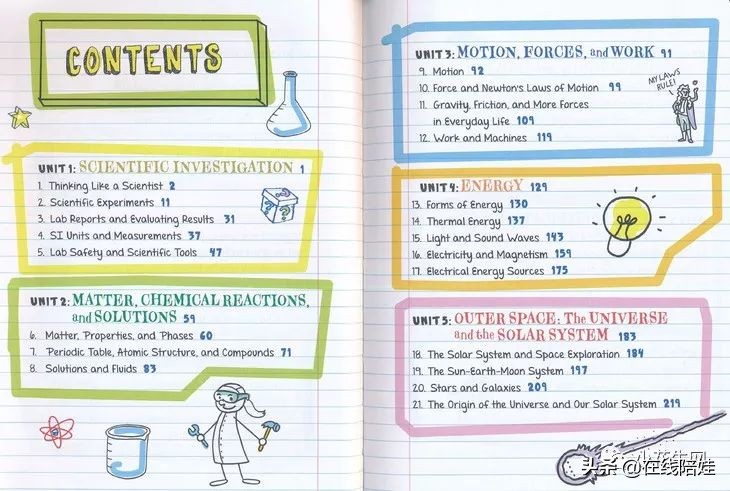 CONTENTS
UNIT 1: SCIENTIFIC INVESTIGATION 1
1. Thinking Like a Scientist 2
2. Scientific Experiments 11
3. Lab Reports and Evaluating Results 31
4. SI Units and Measurements 37
5. Lab Safety and Scientific Tools 47
UNIT 2: MATTER, CHEMICAL REACTIONS,
and SOLUTIONS 59
6. Matter, Properties, and Phases 60
7. Periodic Table, Atomic Structure, and Compounds 71
8. Solutions and Fluids 83
UNIT 3: MOTION, FORCES, and WORK 91
9. Motion 92
10. Force and Newton's Laws of Motion 99
11. Gravity, Friction, and More Forces
in Everyday Life 109
12. Work and Machines 119
MY LAWS
RULE!
UNIT 4: ENERGY 129
13. Forms of Energy 130
14. Thermal Energy 137
15. Light and Sound Waves 143
16. Electricity and Magnetism 159
17. Electrical Energy Sources 175
UNIT 5: OUTER SPACE: The UNIVERSE
and the SOLAR SYSTEM 183
18. The Solar System and Space Exploration 184
19. The Sun-Earth-Moon System 197
20. Stars and Galaxies 209
21. The Origin of the Universe and Our Solar System 219
小花生网
头条 @在线陪娃